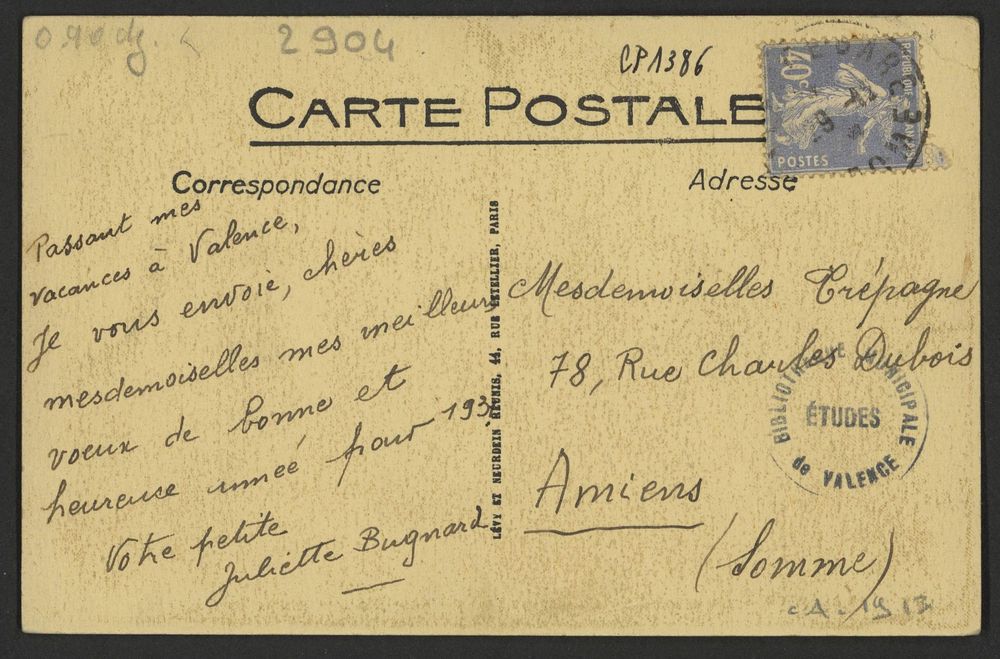 2904
CP1386
CARTE POSTALE
40c
POSTES
Correspondance
Adresse
Passant mes
vacances à Valence,
Je vous envoie, chères
mesdemoiselles mes meilleurs
voeux de bonne et
heureuse année pour 193
Votre petite
Juliette Bugnard
LÉVY ET NEURDEIN RÉUNIS, 44, RUE LETELLIER, PARIS
Mesdemoiselles Trépagne
78, Rue Charles Dubois
Amiens
(Somme)
BIBLIOTHEQUE MUNICIPALE
ÉTUDES
de VALENCE